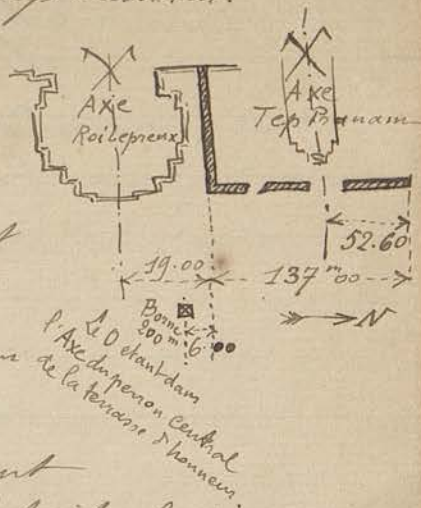 Axe
Roi Lepreux
Axe
Tep Pranam
52.60
19.00
137 m 00
N
Borne
200 m
6 00
Le 0 etant dans
l'Axe du perron central
de la terrasse d'honneur